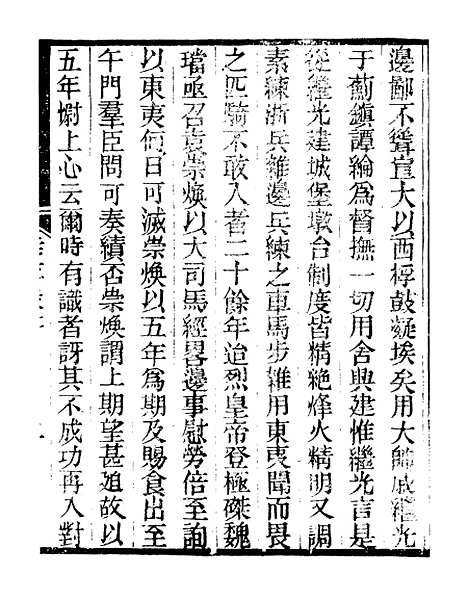 邊鄙不聳宣大以西桴鼓凝埃矣用大帥戚繼光
于薊鎮譚綸爲督撫一切用舍興建惟繼光言是
從繼光建城堡墩台制度皆精絶烽火精明又調
素練浙兵雜邊兵練之車馬步雜用東夷聞而畏
之匹騎不敢入者二十餘年迨烈皇帝登極磔魏
璫亟召袁崇煥以大司馬經畧邊事慰勞倍至詢
以東夷何日可滅崇煥以五年爲期及賜食出至
午門羣臣問可奏績否崇煥謂上期望甚廹故以
五年慰上心云爾時有識者訝其不成功再入對